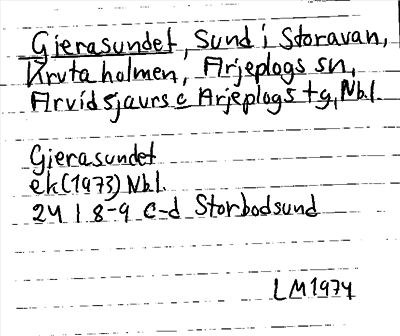 Gierasundet, Sund i Storavan,
Krutaholmen, Arjeplogs sn,
Arvidsjaurs o Arjeplogs tg, Nbl.
Gierasundet
ek (1973) Nbl.
24 I 8-9 c-d Storbodsund
LM 1974